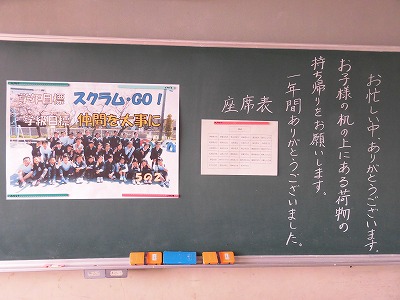 学年目標 スクラム・GO!
学級目標 仲間を大事に
502
座席表
お忙しい中、ありがとうございます。
お子様の机の上にある荷物の
持ち帰りをお願いします。
一年間ありがとうございました。